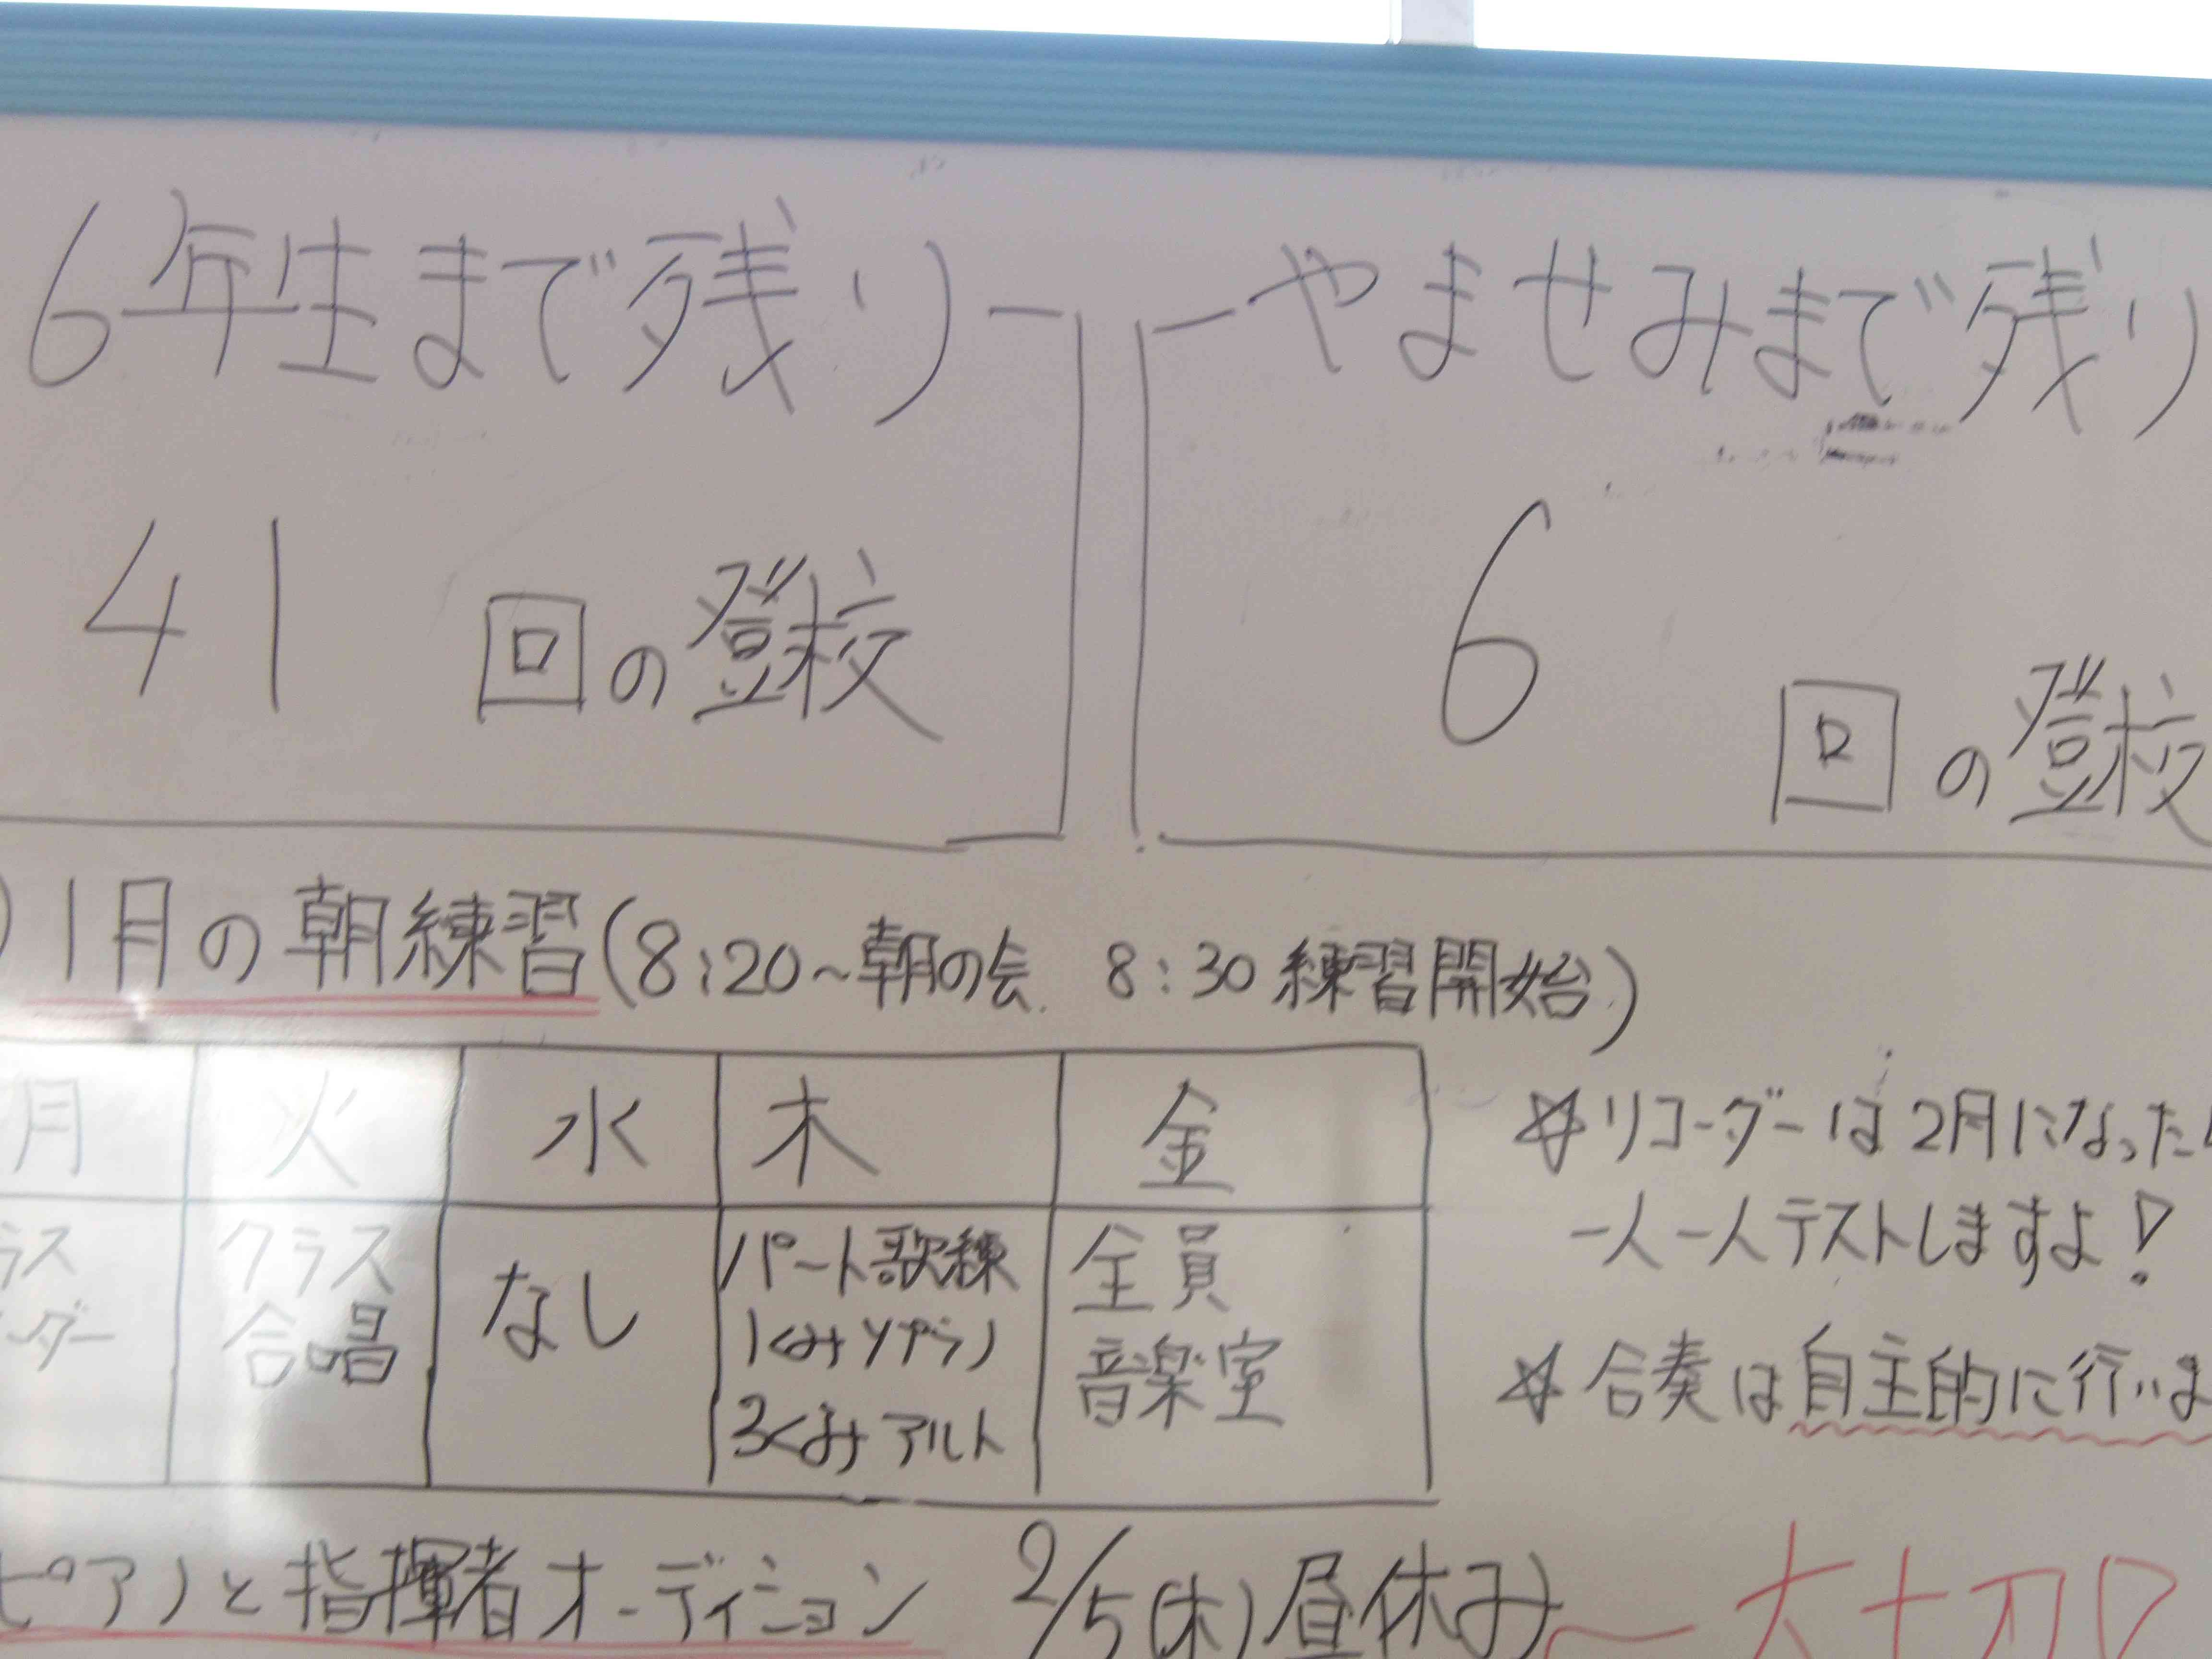 6年生まで残り
41 回の登校
やませみまで残り
6 回の登校
1月の朝練習(8:20~朝の会 8:30 練習開始)
月 火 水 木 金
ラス
ーダー
クラス
合唱
なし
パート歌練
1くみソプラノ
3くみアルト
全員
音楽室
☆リコーダーは2月になったら
一人一人テストしますよ!
☆合奏は自主的に行いま
ピアノと指揮者オーディション 2/5(木)昼休み~大切!